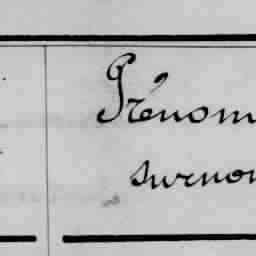 Prénom
surnom